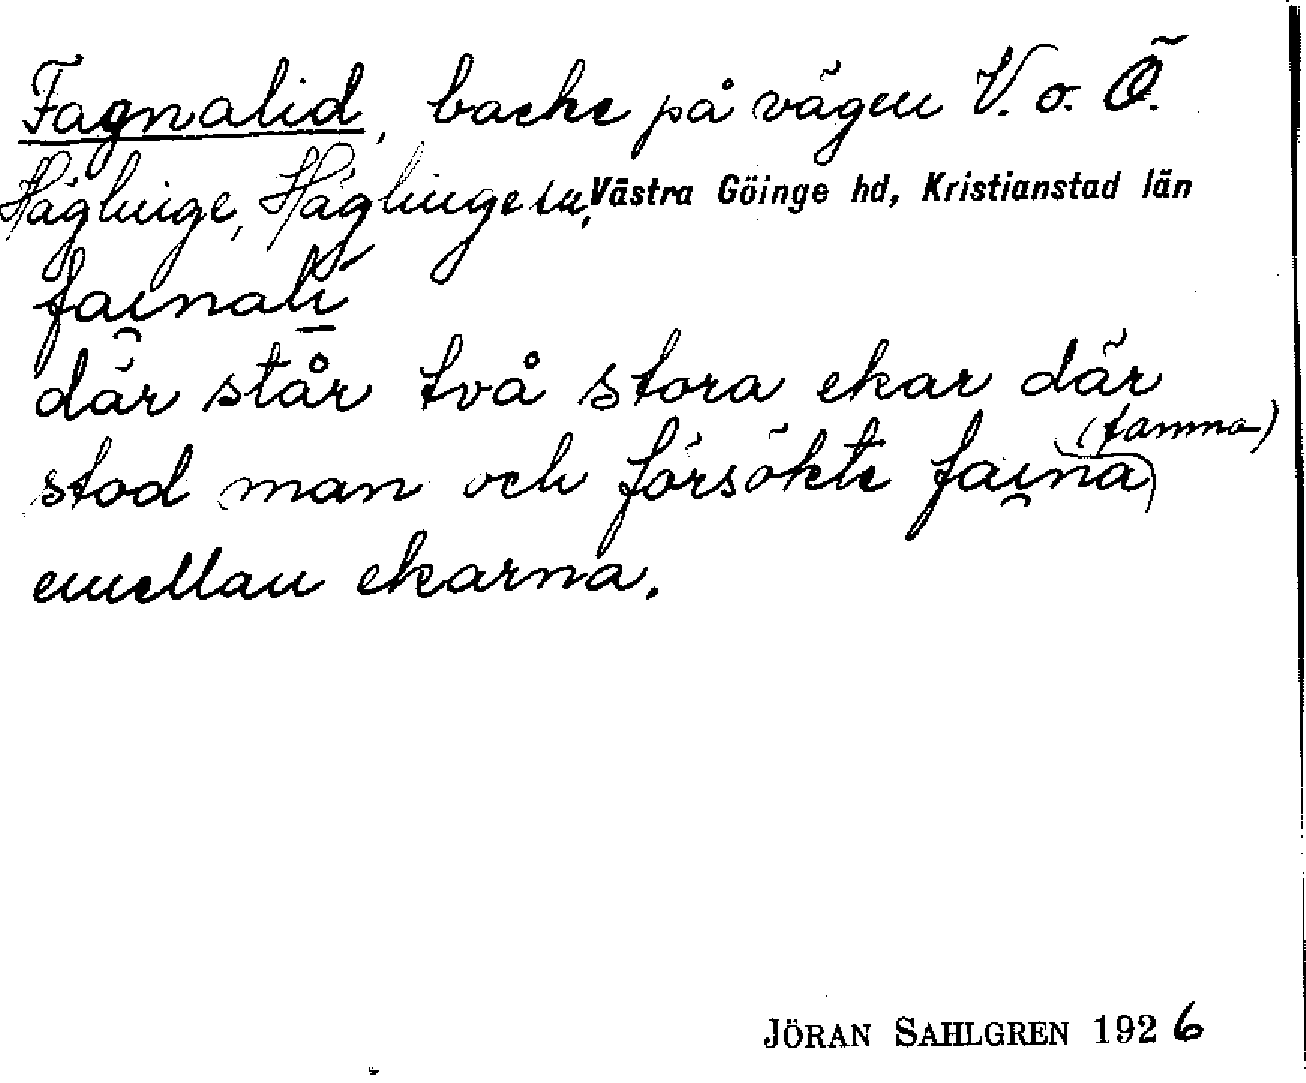 Fagnalid, backe på vägen V. o. Ö.
Häglinge, Häglinge sn, Västra Göinge hd, Kristianstad län
fai̯nalī
där står två stora ekar där
stod man och försökte fai̯na (famna)
emellan ekarna.
JÖRAN SAHLGREN 1926